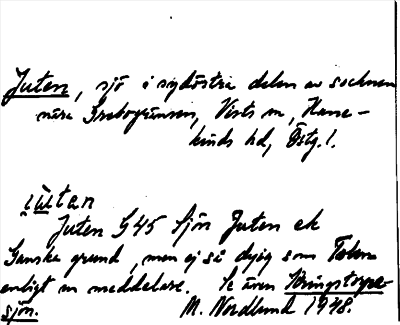 Juten, sjö i sydöstra delen av socknen
nära Grebogränsen, Vists sn, Hane-
kinds hd, Östg. l.
jùtən
Juten G45 Sjön Juten ek
Ganska grund, men ej så dyig som
enligt en meddelare. Se även
sjön. M. Nordlund 1948.